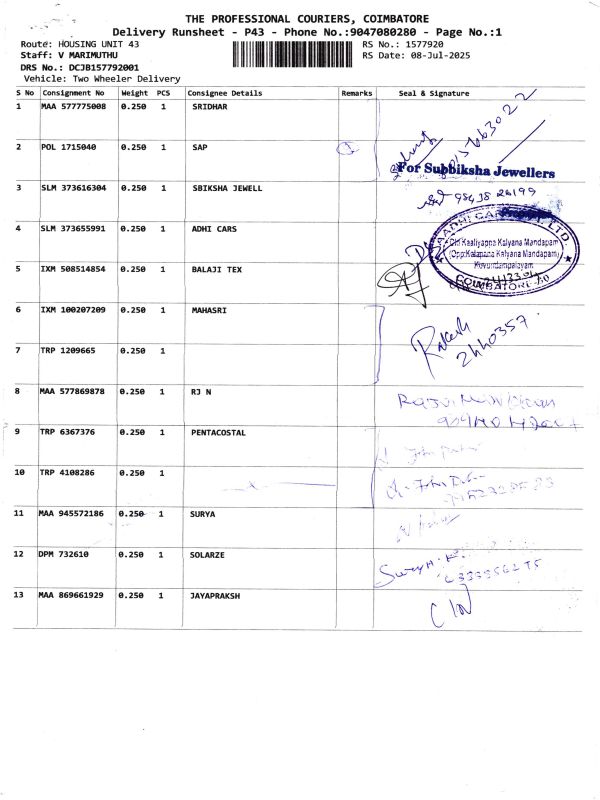 THE PROFESSIONAL COURIERS, COIMBATORE
Delivery Runsheet - P43 - Phone No.:9047080280 - Page No.:1
Route: HOUSING UNIT 43 RS No.: 1577920
Staff: V MARIMUTHU RS Date: 08-Jul-2025
DRS No.: DCJB157792001
Vehicle: Two Wheeler Delivery
S No Consignment No Weight PCS Consignee Details Remarks Seal & Signature
1 MAA 577775008 0.250 1 SRIDHAR
2 POL 1715040 0.250 1 SAP
For Subbiksha Jewellers
3 SLM 373616304 0.250 1 SBIKSHA JEWELL
4 SLM 373655991 0.250 1 ADHI CARS
Kaaliyappa Kalyana Mandapam
(Opp:Kalapana Kalyana Mandapam)
5 IXM 508514854 0.250 1 BALAJI TEX
6 IXM 100207209 0.250 1 MAHASRI
Rakesh
7 TRP 1209665 0.250 1
8 MAA 577869878 0.250 1 RJ N
9 TRP 6367376 0.250 1 PENTACOSTAL
10 TRP 4108286 0.250 1
11 MAA 945572186 0.250 1 SURYA
12 DPM 732610 0.250 1 SOLARZE
Surya.K
13 MAA 869661929 0.250 1 JAYAPRAKSH